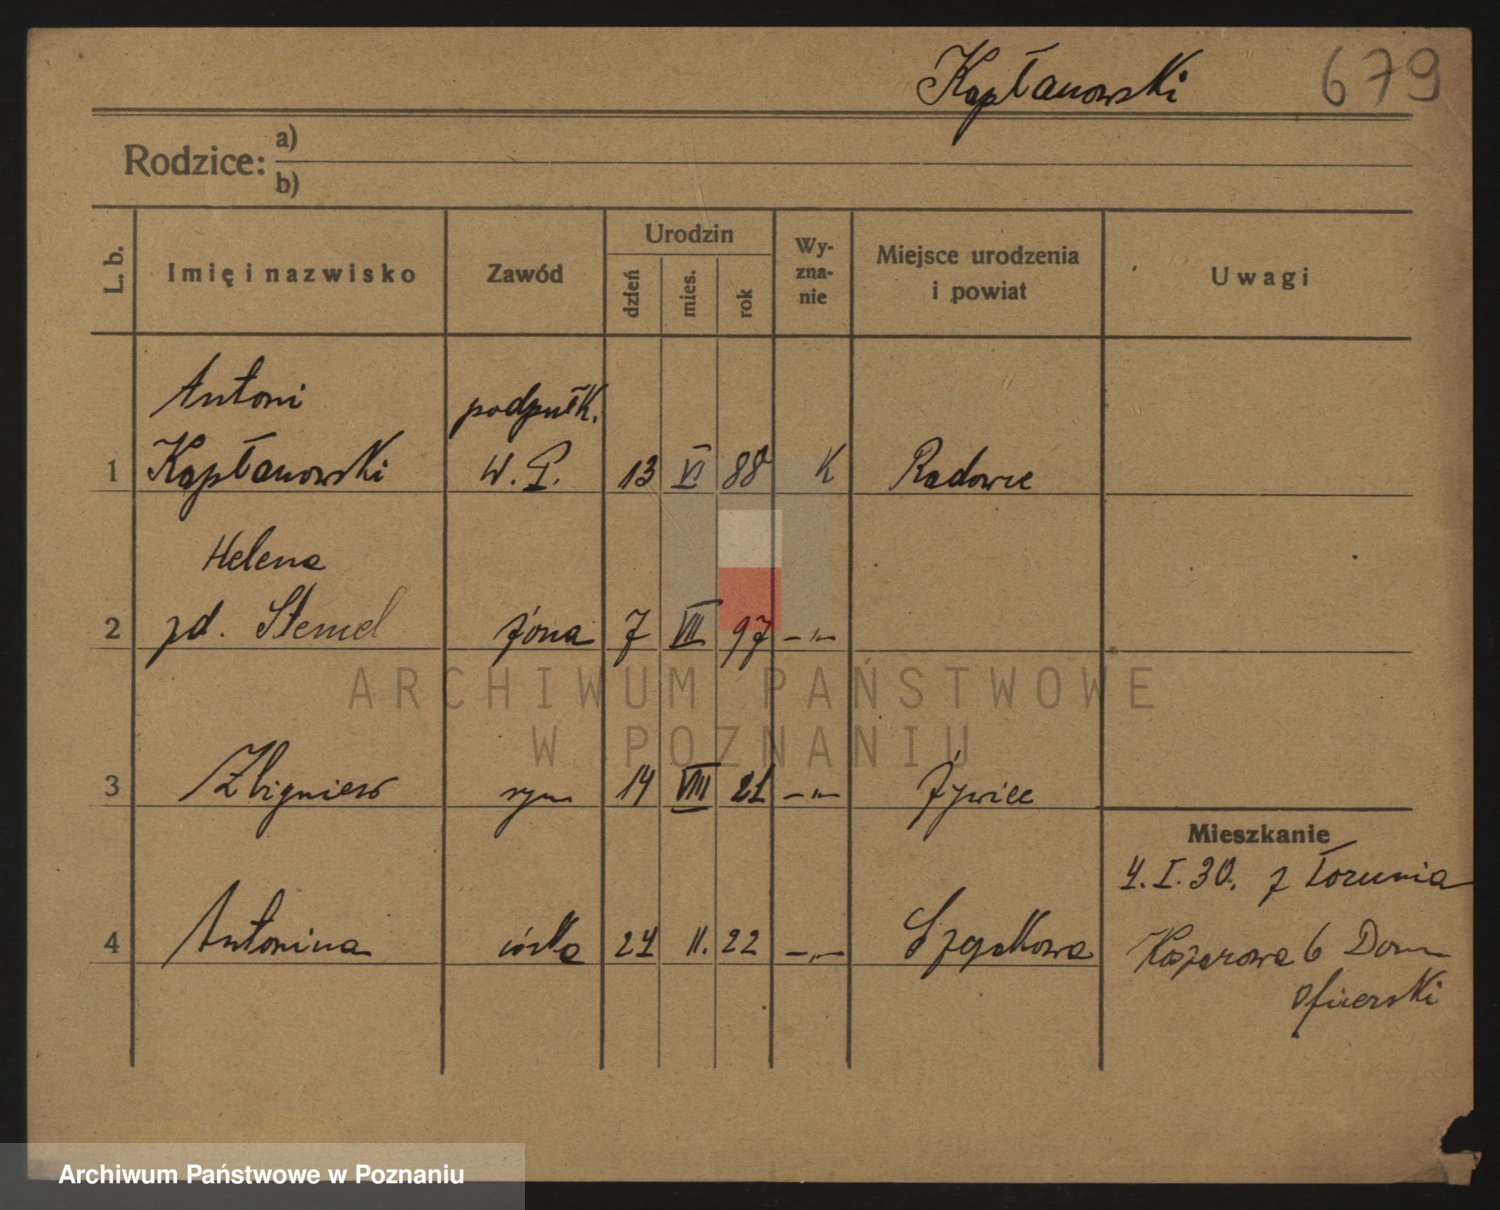 Kapłanowski 679
Rodzice: a)
b)
L. b. Imię i nazwisko Zawód Urodzin dzień mies. rok Wy-zna-nie Miejsce urodzenia i powiat Uwagi
Antoni podpułk.
1 Kapłanowski W. P. 13 VI 88 K Radowce
Helena
2 zd. Stemel żona 7 VII 97 -"-
ARCHIWUM PAŃSTWOWE
W POZNANIU
3 Zbigniew syn 14 VIII 21 -"- Żywiec
Mieszkanie
4. I. 30. z Torunia
4 Antonina córka 24 II. 22 -"-
Koszarowa 6 Dom
Oficerski
Archiwum Państwowe w Poznaniu